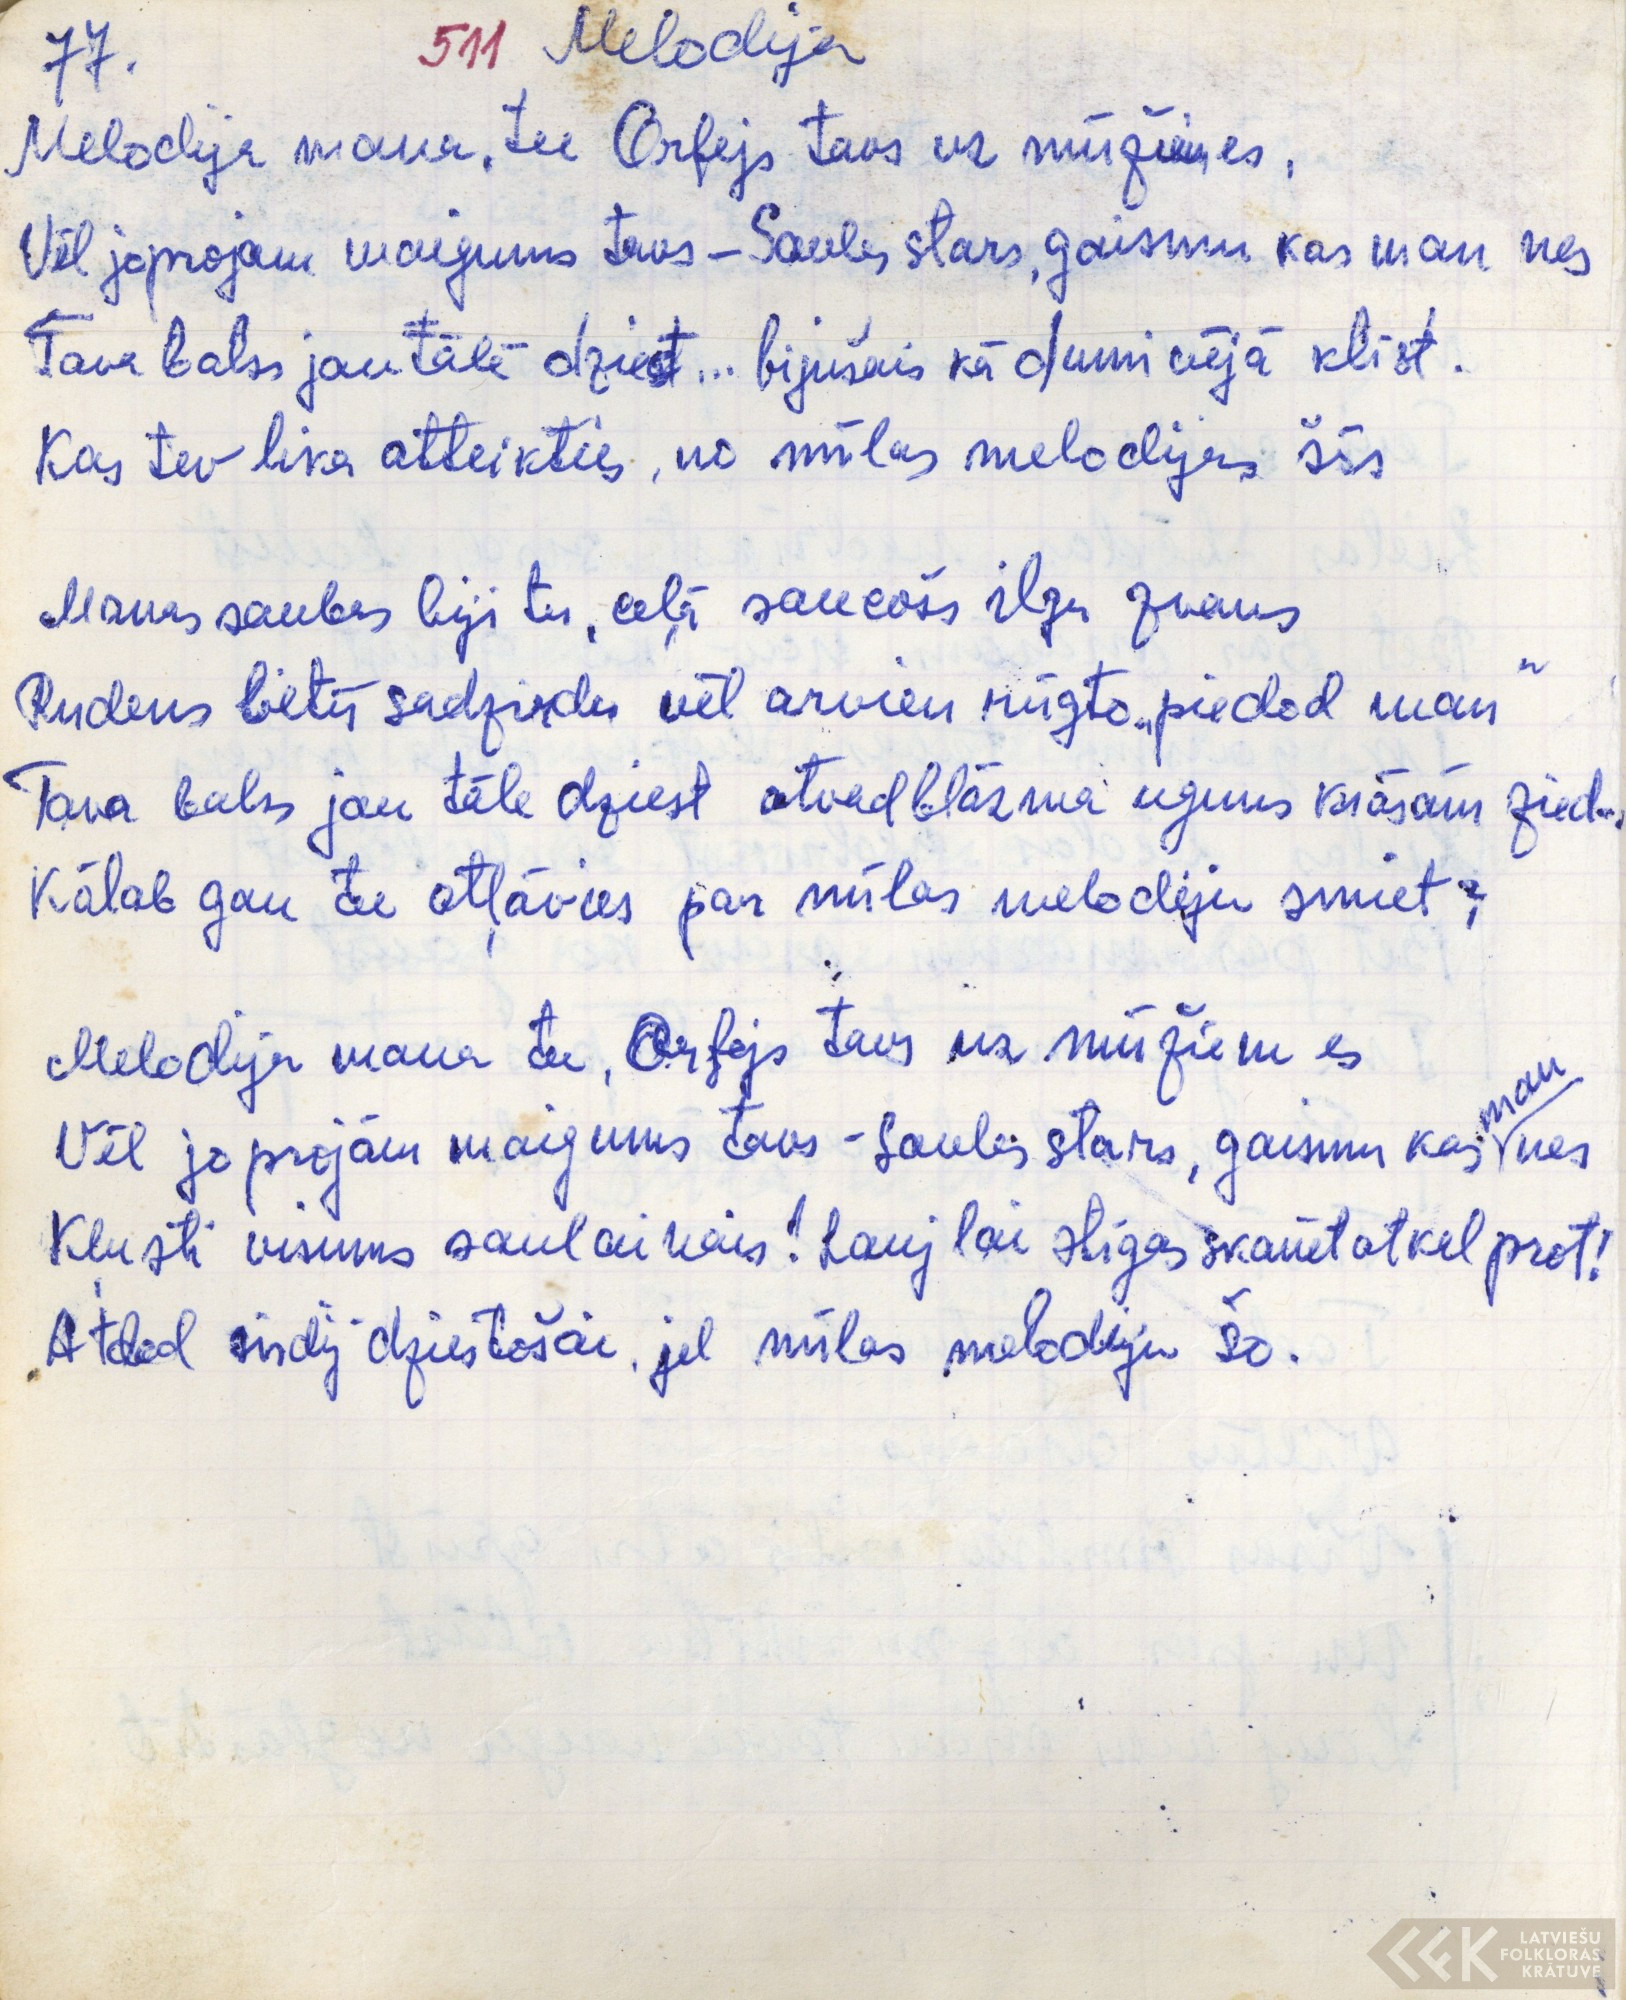 77. 511 Melodija
Melodija mana, tu Orfejs tavs uz mūžiem es,
Vēl joprojam maigums tavs - Saules stars, gaismu kas man nes
Tava balss jau tālē dziest... bijušais kā dūmi vējā klīst.
Kas tev lika atteikties, no mīlas melodijas šīs
Manas saules biji tu, ceļā saucošs ilgu zvans
Rudens lietū sadzirdu vēl arvien rūgto „piedod man"
Tava balss jau tāle dziest atvadblāzma uguns krāsām zied.
Kālab gan tu atļāvies par mīlas melodiju smiet?
Melodija mana tu, Orfejs tavs uz mūžiem es
Vēl joprojām maigums tavs - Saules stars, gaismu kas man nes
Kļusti visums saulainais! Ļauj lai stīgas skanēt atkal prot!
Atdod sirdij dziestošai, jel mīlas melodiju šo.
LATVIEŠU
FOLKLORAS
KRĀTUVE